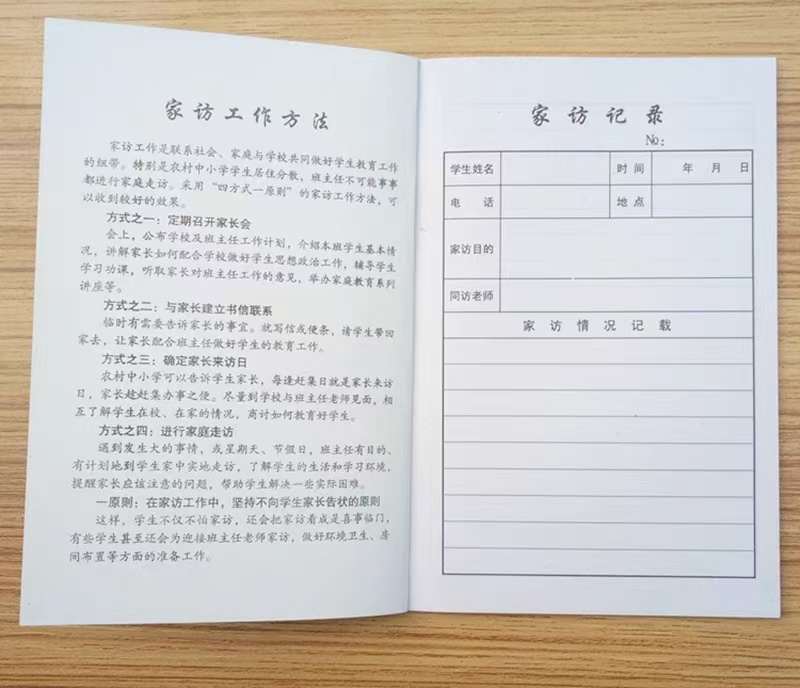 家访工作方法
家访工作是联系社会、家庭与学校共同做好学生教育工作
的纽带。特别是农村中小学学生居住分散，班主任不可能事事
都进行家庭走访。采用“四方式一原则”的家访工作方法，可
以收到较好的效果。
方式之一：定期召开家长会
会上，公布学校及班主任工作计划，介绍本班学生基本情
况，讲解家长如何配合学校做好学生思想政治工作，辅导学生
学习功课，听取家长对班主任工作的意见，举办家庭教育系列
讲座等。
方式之二：与家长建立书信联系
临时有需要告诉家长的事宜。就写信或便条，请学生带回
家去，让家长配合班主任做好学生的教育工作。
方式之三：确定家长来访日
农村中小学可以告诉学生家长，每逢赶集日就是家长来访
日，家长趁赶集办事之便。尽量到学校与班主任老师见面，相
互了解学生在校、在家的情况，商讨如何教育好学生。
方式之四：进行家庭走访
遇到发生大的事情，或星期天、节假日，班主任有目的、
有计划地到学生家中实地走访，了解学生的生活和学习环境，
提醒家长应该注意的问题，帮助学生解决一些实际困难。
一原则：在家访工作中，坚持不向学生家长告状的原则
这样，学生不仅不怕家访，还会把家访看成是喜事临门，
有些学生甚至还会为迎接班主任老师家访，做好环境卫生、房
间布置等方面的准备工作。
家访记录
No：
学生姓名 时间 年 月 日
电话 地点
家访目的
同访老师
家访情况记载